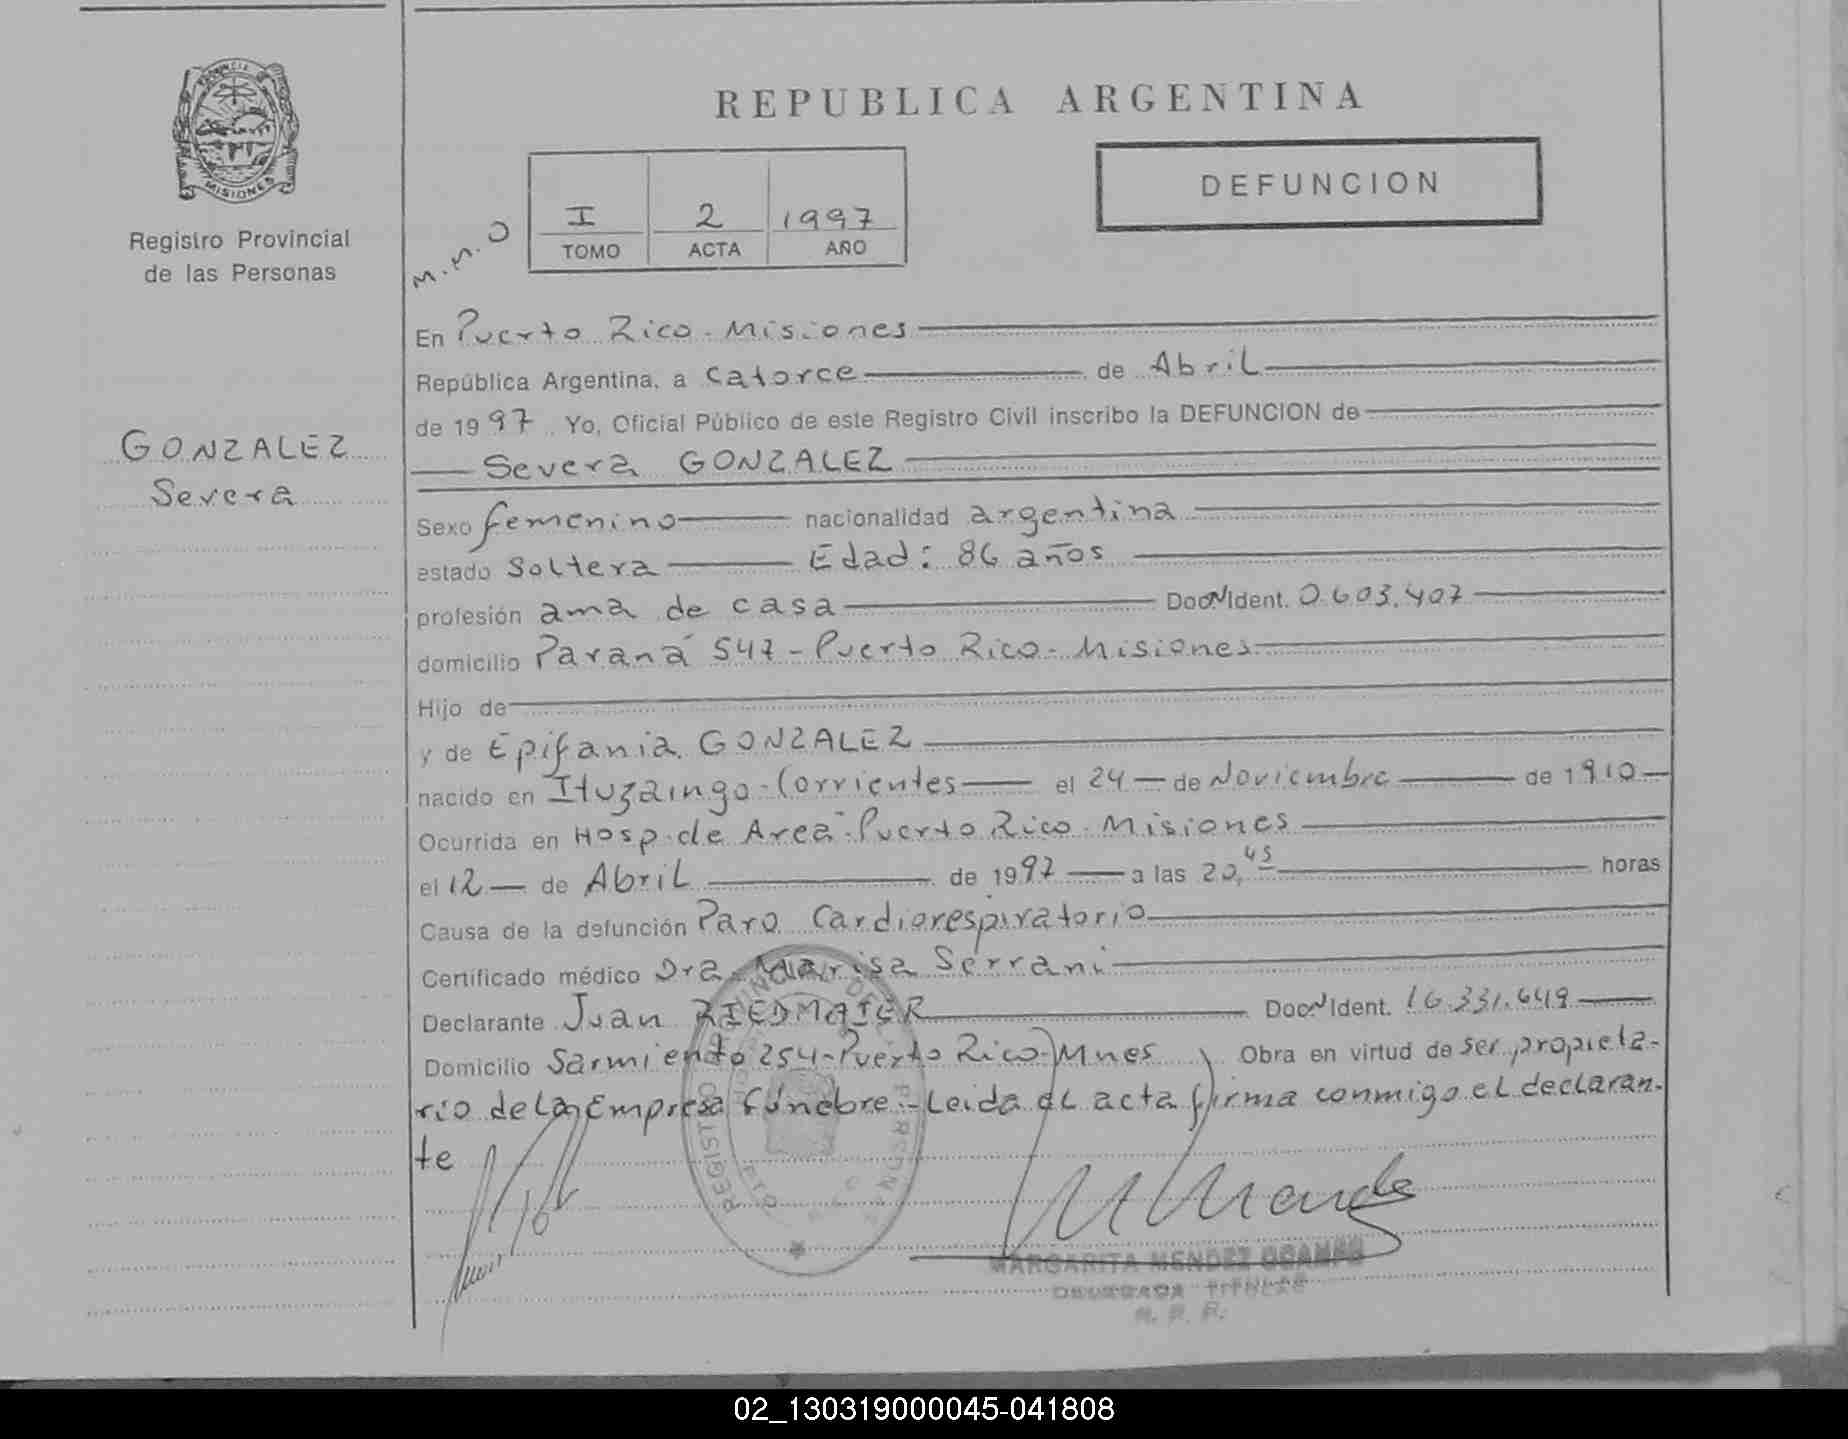 PROVINCIA DE
MISIONES
Registro Provincial
de las Personas
GONZALEZ
Severa
REPUBLICA ARGENTINA
DEFUNCION
M.M.O
I 2 1997
TOMO ACTA AÑO
En Puerto Rico - Misiones
República Argentina, a catorce de Abril
de 1997. Yo, Oficial Público de este Registro Civil inscribo la DEFUNCION de
Severa GONZALEZ
Sexo femenino nacionalidad argentina
estado Soltera Edad: 86 años
profesión ama de casa Doc. N Ident. 0.603.407
domicilio Paraná 547 - Puerto Rico - Misiones
Hijo de
y de Epifania GONZALEZ
nacido en Ituzaingo - Corrientes el 24 de Noviembre de 1910
Ocurrida en Hosp. de Area - Puerto Rico - Misiones
el 12 de Abril de 1997 a las 20,45 horas
Causa de la defunción Paro Cardiorespiratorio
Certificado médico Dra. Marisa Serrani
Declarante Juan RIEDMAIER Doc. N Ident. 16.331.649
Domicilio Sarmiento 254 - Puerto Rico - Mnes Obra en virtud de ser propieta-
rio de la Empresa fúnebre - Leida el acta firma conmigo el declaran-
te
REGISTRO
MARGARITA MENDEZ OCAMPO
DELEGADA TITULAR
R. P. P.
02_130319000045-041808